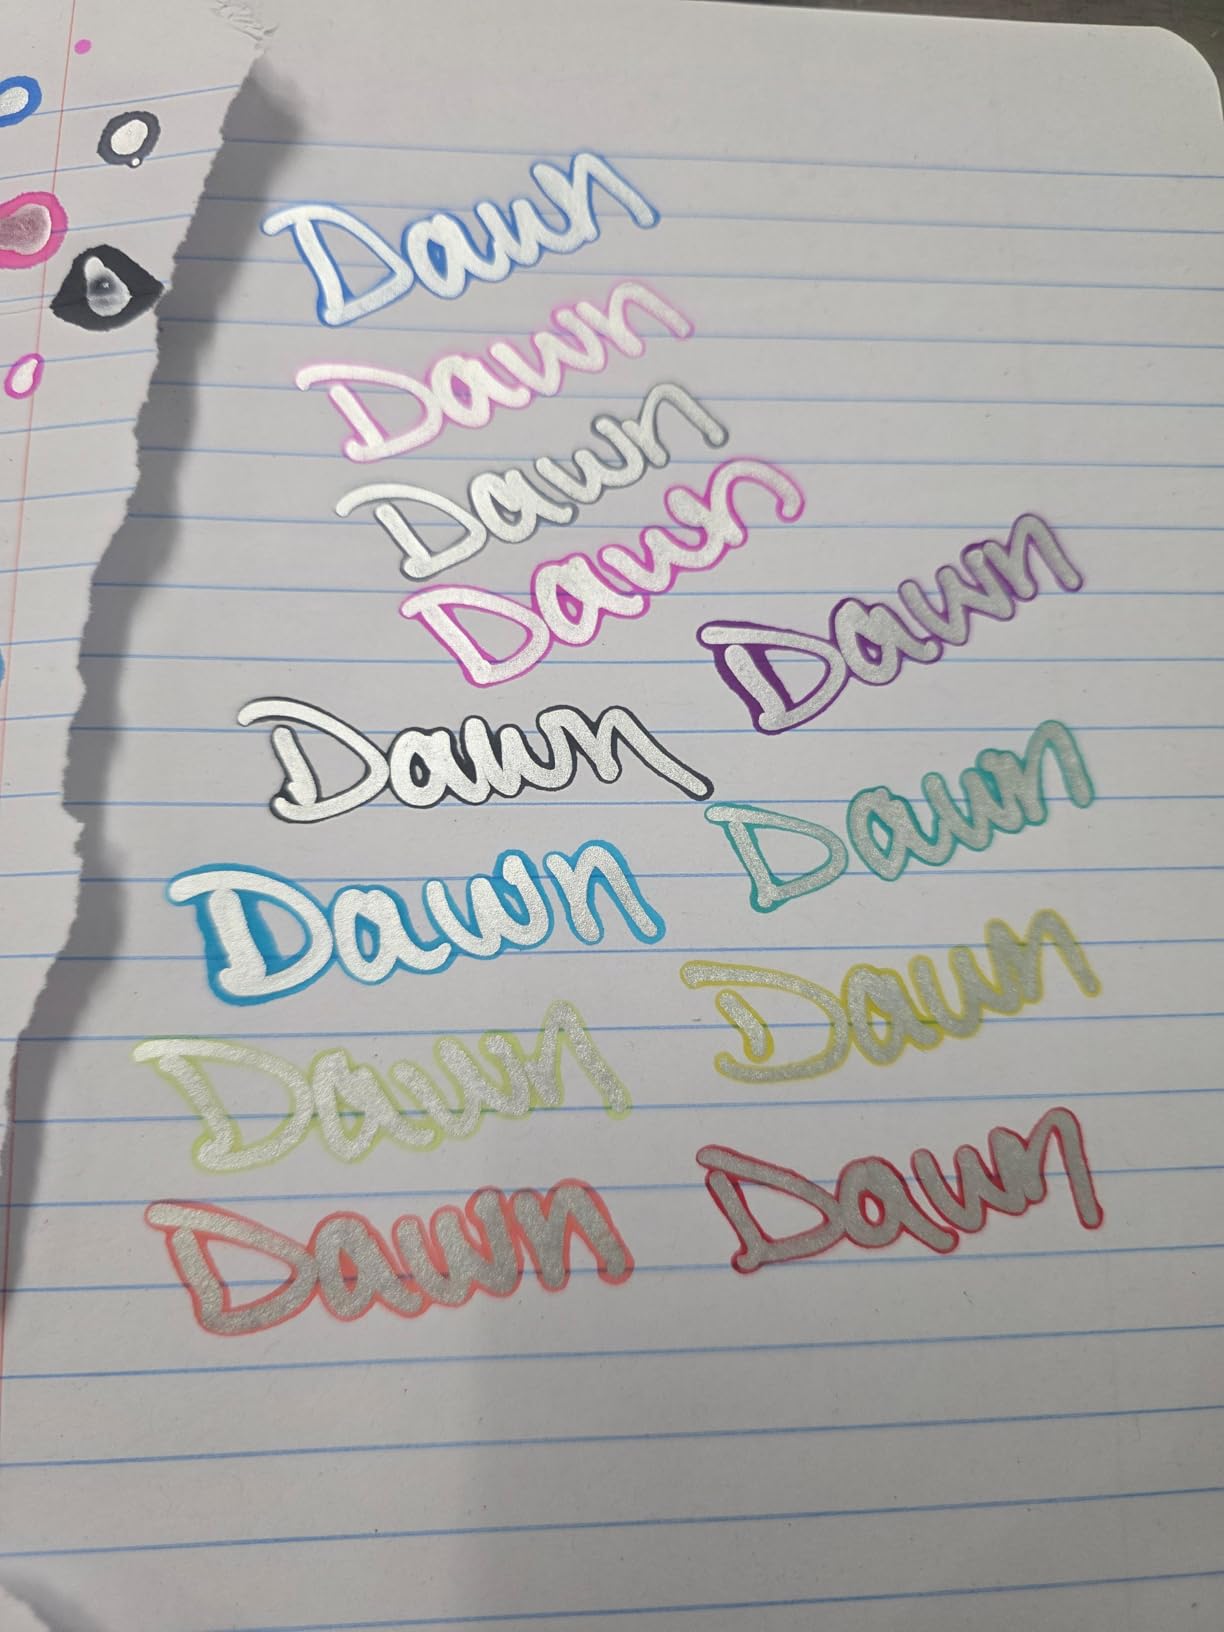 Dawn
Dawn
Dawn
Dawn
Dawn
Dawn
Dawn
Dawn
Dawn
Dawn
Dawn
Dawn